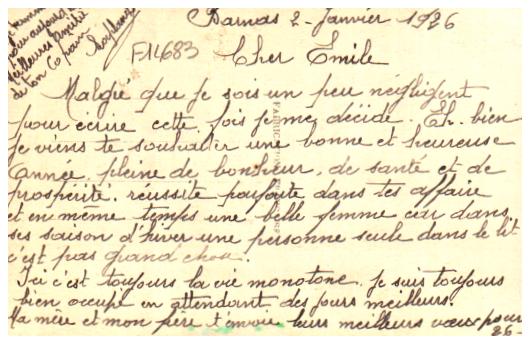 Barnas 2 - Janvier 1926
Cher Emile
Malgré que je sois un peu négligent
pour écrire cette fois je me décide. Eh bien
je viens te souhaiter une bonne et heureuse
année, pleine de bonheur, de santé et de
prospérité, réussite parfaite dans tes affaire
et en même temps une belle femme car dans
ses saison d'hiver une personne seule dans le lit
c'est pas grand chose.
Ici c'est toujours la vie monotone. Je suis toujours
bien occupé en attendant des jours meilleurs.
Ma mère et mon père t'envoie leurs meilleurs vœux pour
26-
meilleures amitié
de ton Copain
F14683